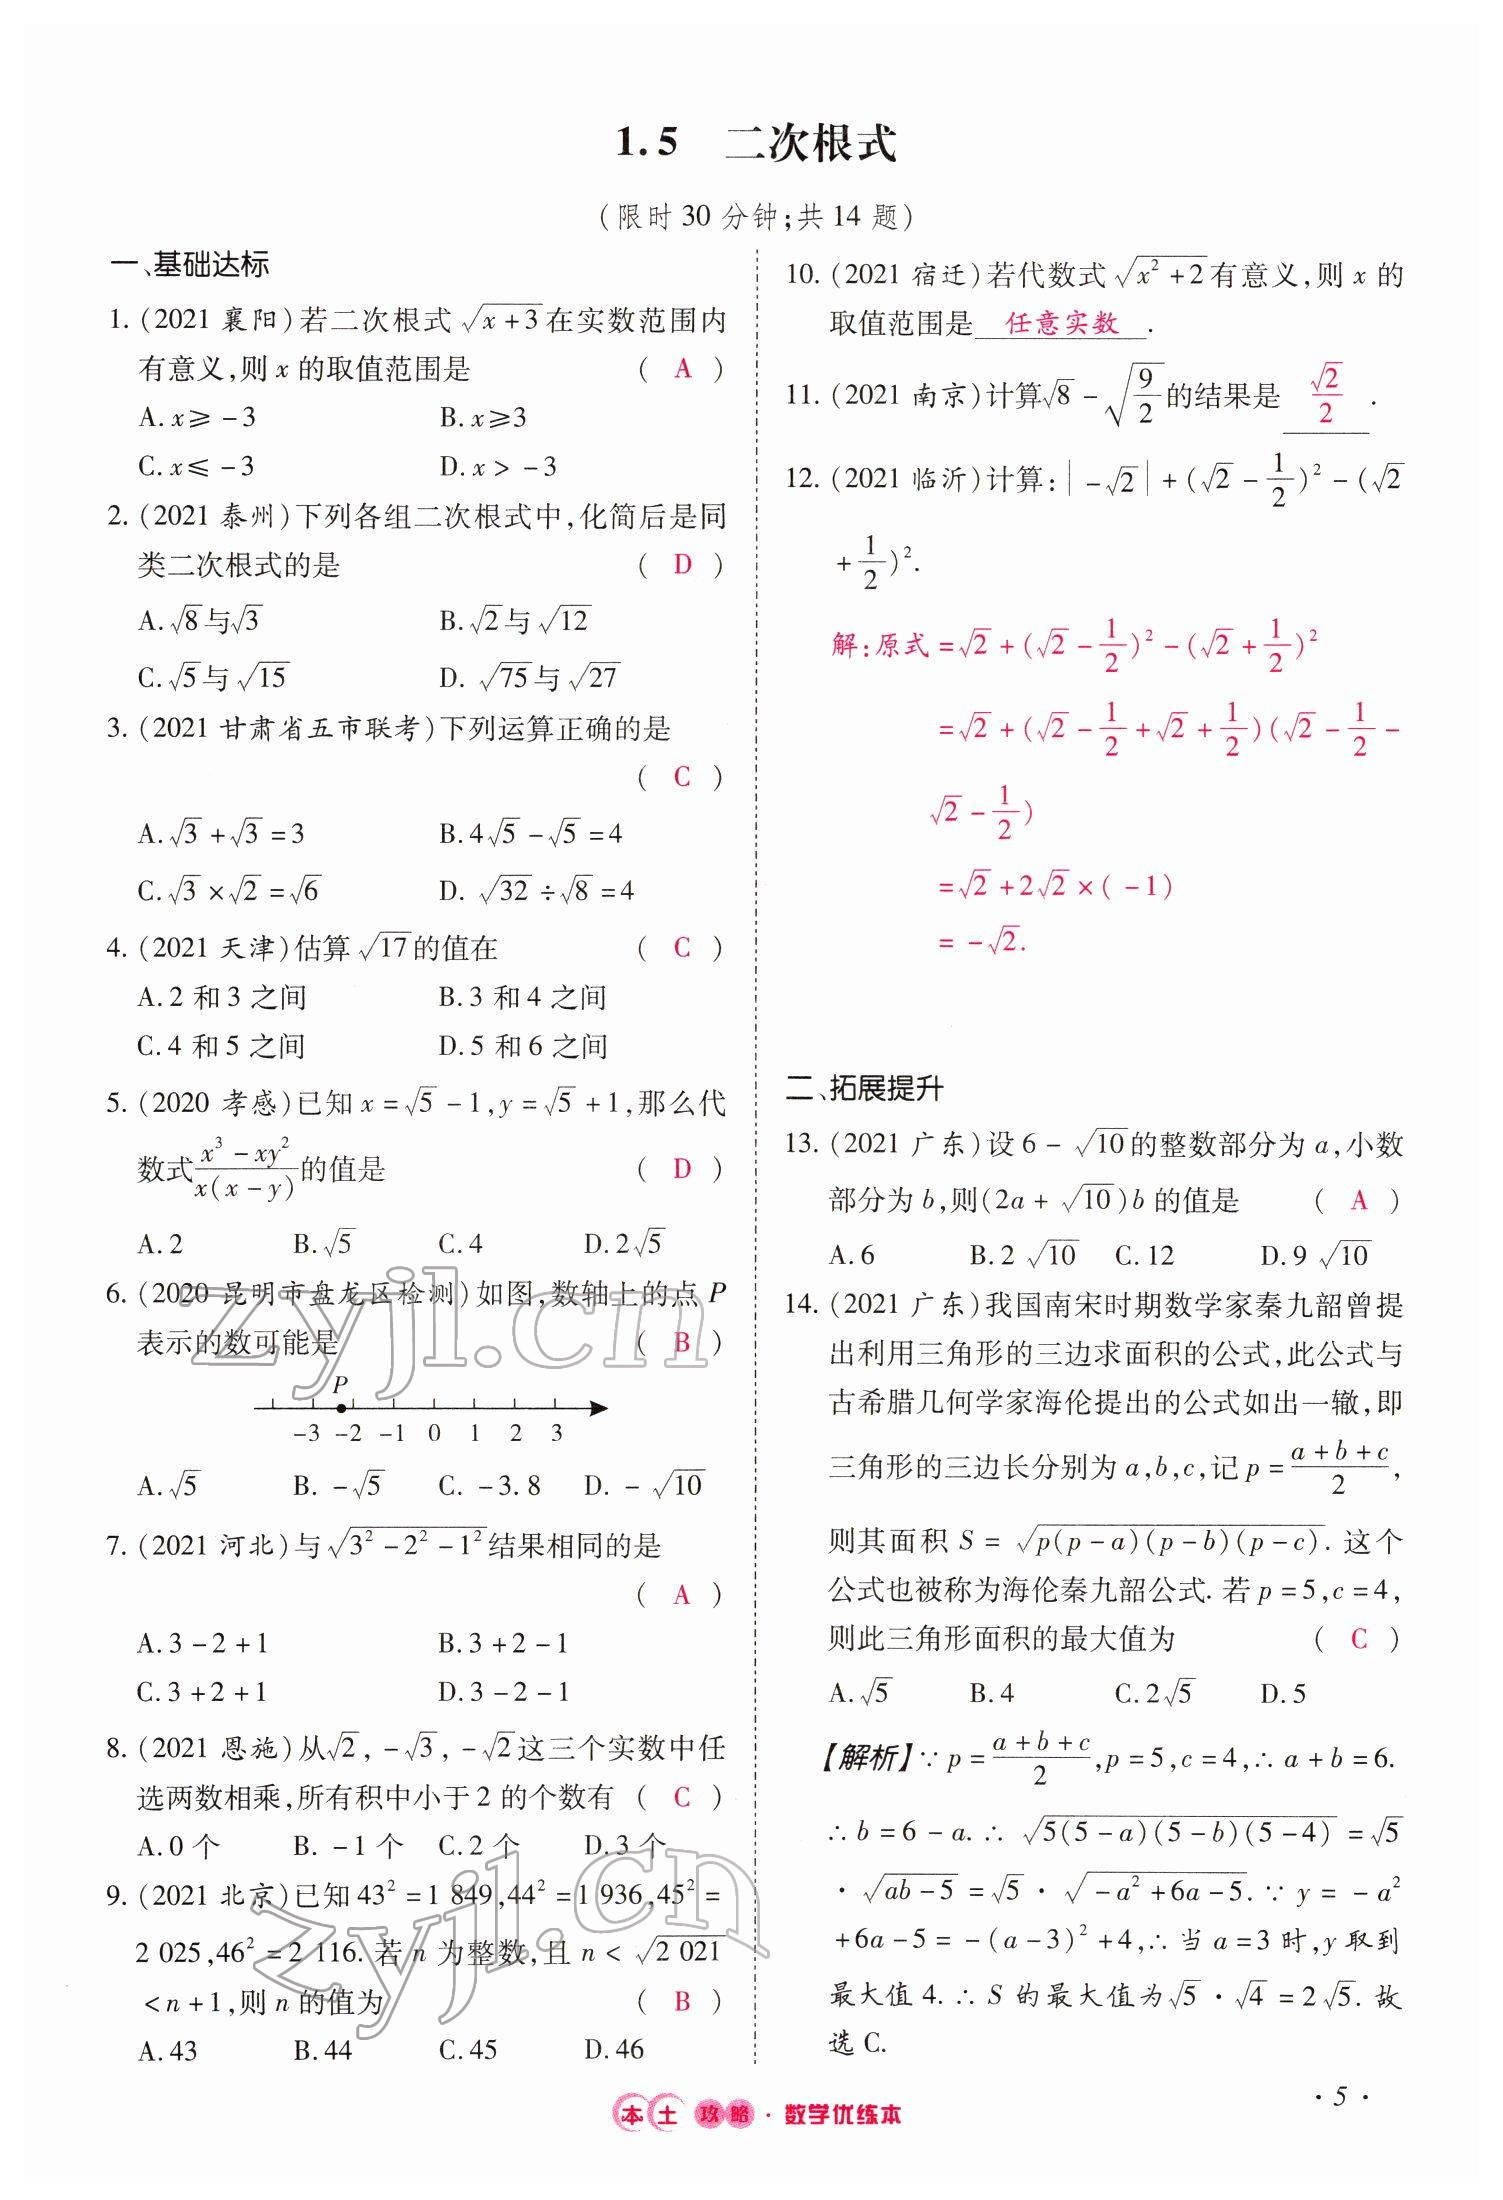 1.5 二次根式
(限时 30 分钟;共 14 题)
一、基础达标
1. (2021 襄阳)若二次根式 √(x+3) 在实数范围内
有意义,则 x 的取值范围是 ( A )
A. x≥-3 B. x≥3
C. x≤-3 D. x>-3
2. (2021 泰州)下列各组二次根式中,化简后是同
类二次根式的是 ( D )
A. √8与√3 B. √2与√12
C. √5与√15 D. √75与√27
3. (2021 甘肃省五市联考)下列运算正确的是
( C )
A. √3+√3=3 B. 4√5-√5=4
C. √3×√2=√6 D. √32÷√8=4
4. (2021 天津)估算√17的值在 ( C )
A. 2 和 3 之间 B. 3 和 4 之间
C. 4 和 5 之间 D. 5 和 6 之间
5. (2020 孝感)已知 x=√5-1,y=√5+1,那么代
数式(x³-xy²)/(x(x-y))的值是 ( D )
A. 2 B. √5 C. 4 D. 2√5
6. (2020 昆明市盘龙区检测)如图,数轴上的点 P
表示的数可能是 ( B )
P
-3 -2 -1 0 1 2 3
A. √5 B. -√5 C. -3.8 D. -√10
7. (2021 河北)与√(3²-2²-1²)结果相同的是
( A )
A. 3-2+1 B. 3+2-1
C. 3+2+1 D. 3-2-1
8. (2021 恩施)从√2,-√3,-√2这三个实数中任
选两数相乘,所有积中小于 2 的个数有 ( C )
A. 0 个 B. -1 个 C. 2 个 D. 3 个
9. (2021 北京)已知 43²=1 849,44²=1 936,45²=
2 025,46²=2 116. 若 n 为整数,且 n<√2 021
<n+1,则 n 的值为 ( B )
A. 43 B. 44 C. 45 D. 46
10. (2021 宿迁)若代数式√(x²+2)有意义,则 x 的
取值范围是 任意实数 .
11. (2021 南京)计算√8-√(9/2)的结果是 √2/2 .
12. (2021 临沂)计算:|-√2|+(√2-1/2)²-(√2
+1/2)².
解:原式=√2+(√2-1/2)²-(√2+1/2)²
=√2+(√2-1/2+√2+1/2)(√2-1/2-
√2-1/2)
=√2+2√2×(-1)
=-√2.
二、拓展提升
13. (2021 广东)设 6-√10的整数部分为 a,小数
部分为 b,则(2a+√10)b 的值是 ( A )
A. 6 B. 2√10 C. 12 D. 9√10
14. (2021 广东)我国南宋时期数学家秦九韶曾提
出利用三角形的三边求面积的公式,此公式与
古希腊几何学家海伦提出的公式如出一辙,即
三角形的三边长分别为 a,b,c,记 p=(a+b+c)/2,
则其面积 S=√(p(p-a)(p-b)(p-c)). 这个
公式也被称为海伦秦九韶公式. 若 p=5,c=4,
则此三角形面积的最大值为 ( C )
A. √5 B. 4 C. 2√5 D. 5
【解析】∵p=(a+b+c)/2,p=5,c=4,∴a+b=6.
∴b=6-a.∴√(5(5-a)(5-b)(5-4))=√5
·√(ab-5)=√5·√(-a²+6a-5).∵y=-a²
+6a-5=-(a-3)²+4,∴当 a=3 时,y 取到
最大值 4.∴S 的最大值为√5·√4=2√5. 故
选 C.
zyjl.cn
zyjl.cn
本土攻略·数学优练本
·5·